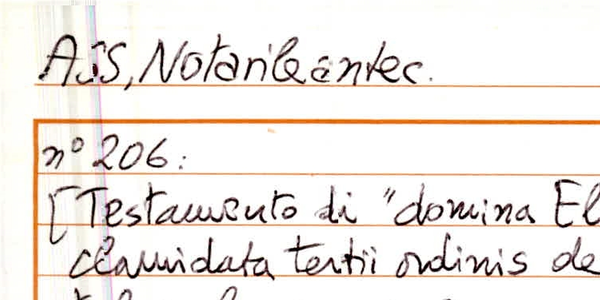 ASS, Notarile antec.
n° 206:
[Testamento di "domina El
clamidata tertii ordinis de